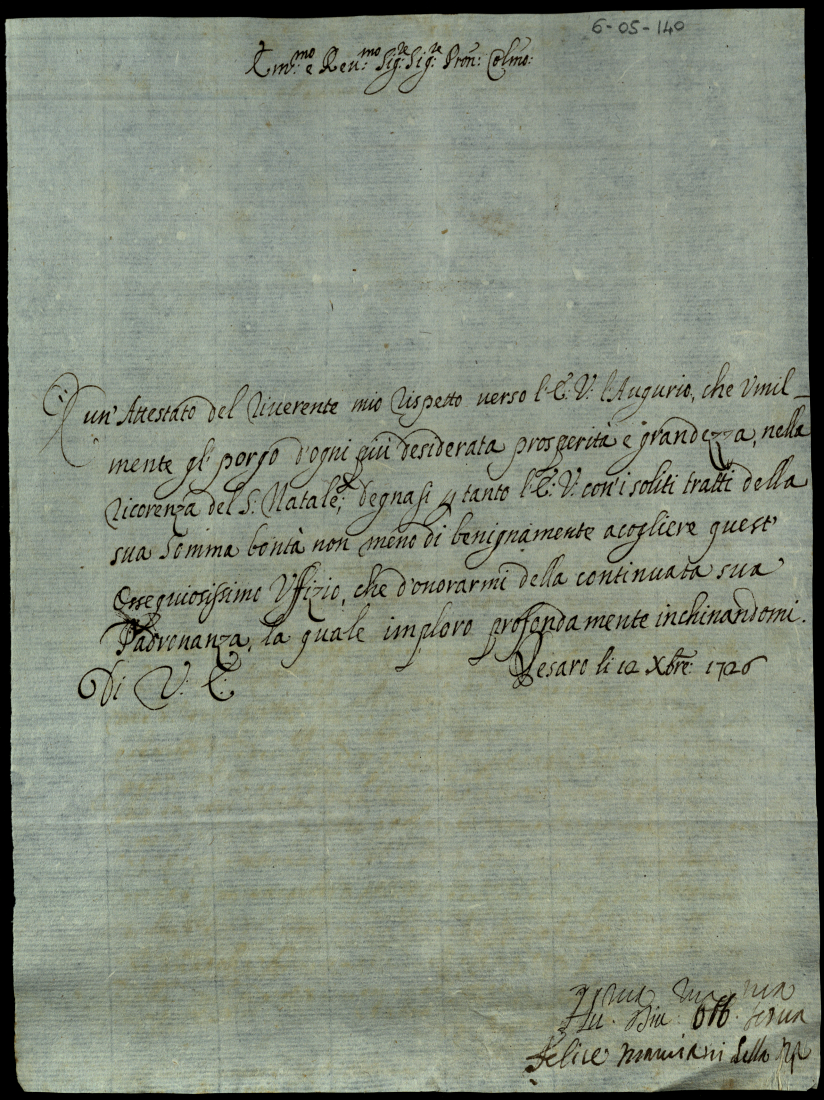 6-05-140
Em.mo e Reu.mo Sig.re Sig.re Pron: Colmo:
È un' Attestato del riuerente mio rispetto uerso l'E: V: l'Augurio, che Vmil-
mente gl' porgo d'ogni più desiderata prosperità e grandezza, nella
ricorenza del S: Natale; degnasi tanto l'E: V: con'i soliti tratti della
sua Somma bontà non meno di benignamente acogliere quest'
Ossequiosissimo Vffizio, che d'onorarmi della continuata sua
Padronanza, la quale imploro profondamente inchinandomi.
Di V: E: Pesaro li 12 Xbre: 1726
Hu. Diu. Obb. Serua
Felice Mamiani della